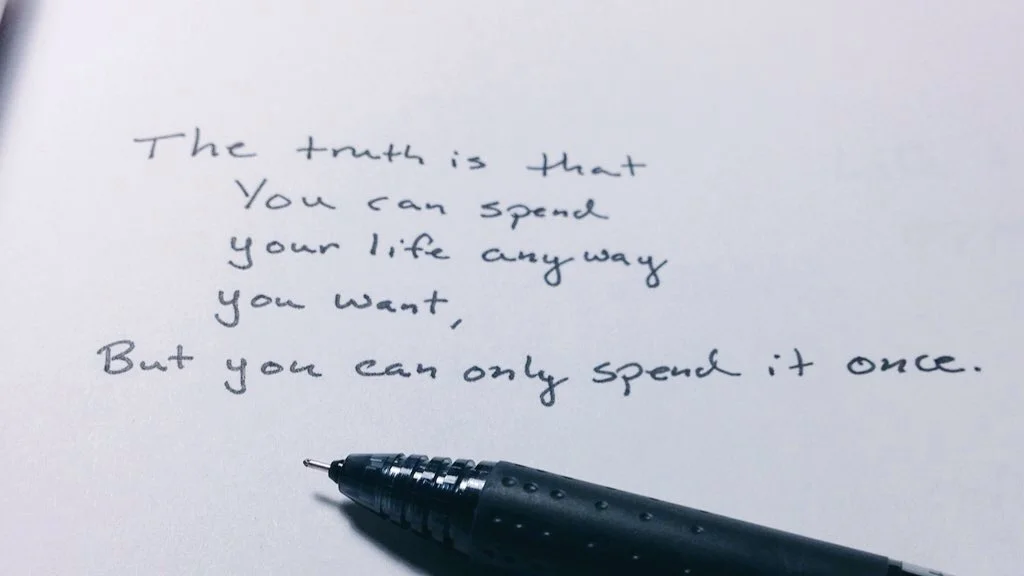 The truth is that
You can spend
your life anyway
you want,
But you can only spend it once.